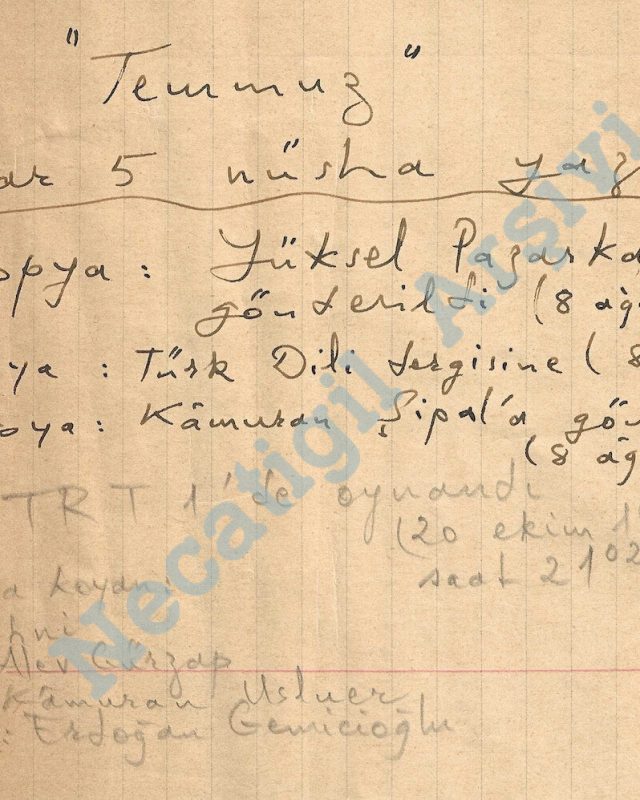 "Temmuz"
ar 5 nüsha yaz
opya: Yüksel Pazarka
gönderildi (8 ağu
ya: Türk Dili dergisine (8
opya: Kâmuran Şipal'a gön
(8 ağ
TRT 1'de oynandı
(20 ekim 1
saat 21⁰²
a koyan:
Alev Gürzap
Kâmuran Usluer
: Erdoğan Gemicioğlu
Necatigil Arşivi